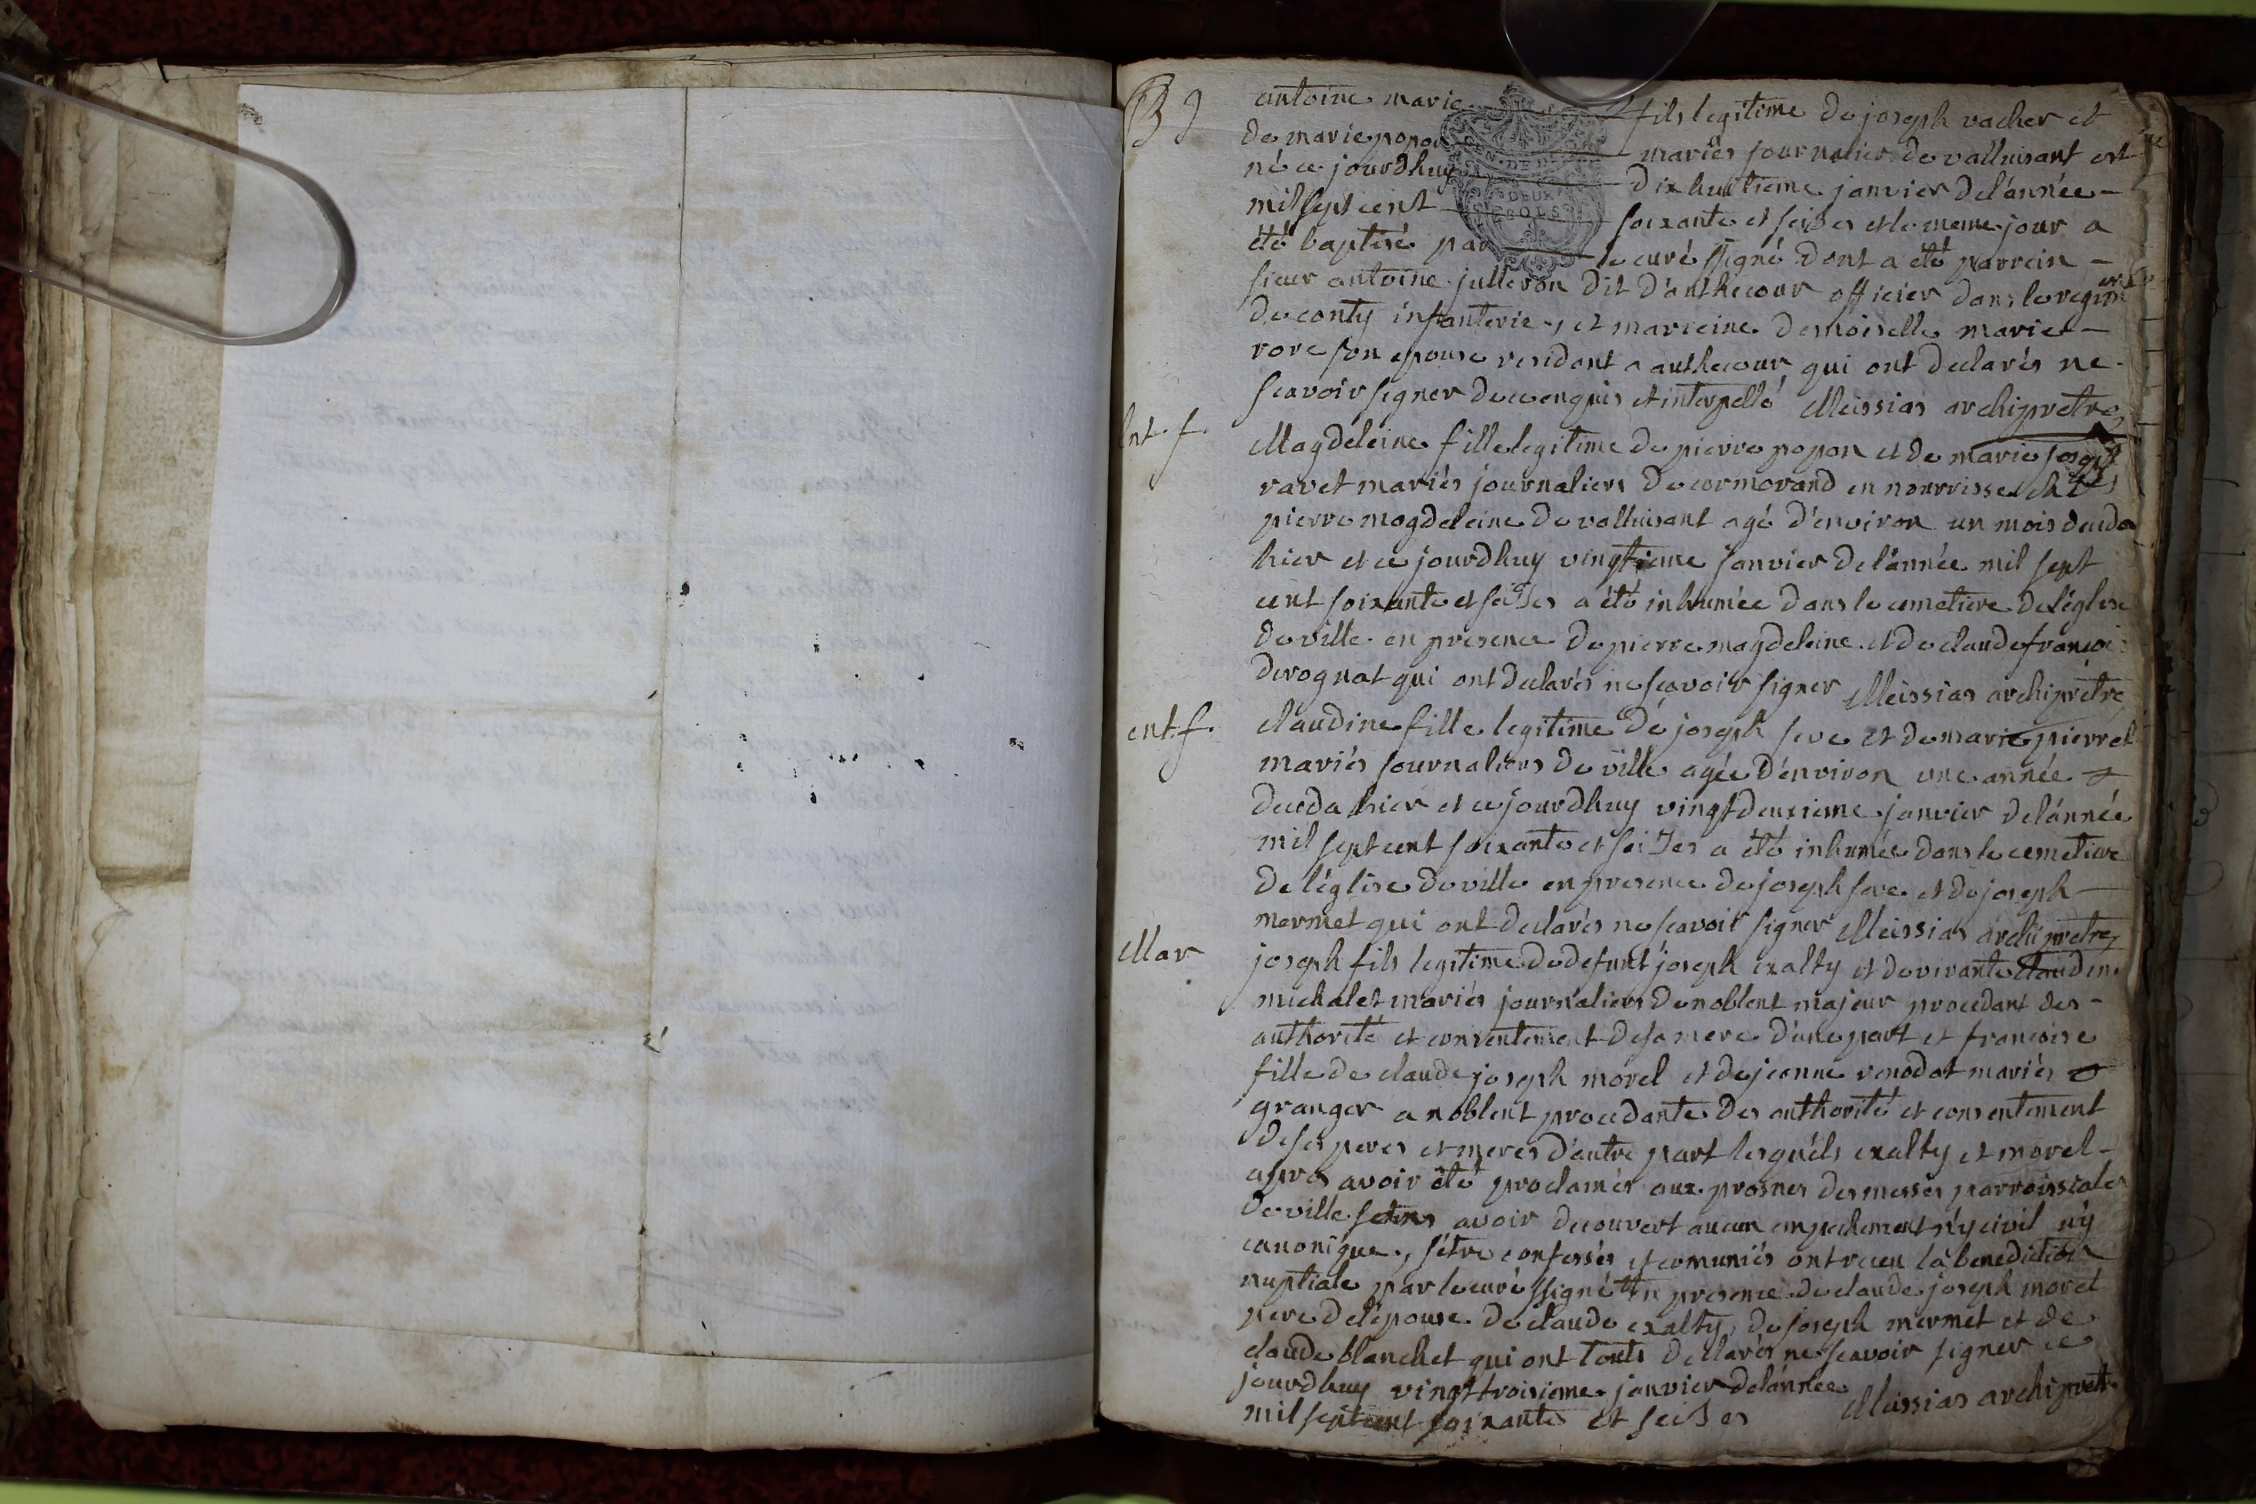 B g
antoine marie fils legitime de joseph vacher et
de marie popon mariés journaliers de valluisant est
né ce jourdhuy dix huitieme janvier de l'année
mil sept cent soixante et seizes et le meme jour a
été baptisé par le curé ssigné dont a été parrein
sieur antoine julleron dit d'anthecour officier dans le regim
de conty infanterie, et marreine demoiselle marie
rore son epouse residant a anthecour qui ont declarés ne
scavoir signer de ce enquis et interpellé Meissias archipretre
Ent. f.
Magdeleine fille legitime de pierre popon et de marie joseph
ravet mariés journaliers de cormorand en nourrisse chés
pierre magdeleine de valluisant agé d'environ un mois deceda
hier et ce jourdhuy vingtieme janvier de l'année mil sept
cent soixante et seizes a été inhumée dans le cemetiere de l'église
de ville en presence de pierre magdeleine et de claude francoi
derognat qui ont declarés ne scavoir signer Meissias archiprêtre
ent. f.
claudine fille legitime de joseph seve et de marie pierrel
mariés journaliers de ville agée d'environ une année
deceda hier et ce jourdhuy vingt deuxieme janvier de l'année
mil sept cent soixante et seizes a été inhumée dans le cemetiere
de l'église de ville en presence de joseph seve et de joseph
mermet qui ont declarés ne scavoir signer Meissias archipretre
Mar
joseph fils legitime de defunt joseph exalty et de vivante claudine
michalet mariés journaliers de noblent majeur procedant des
authorité et consentement de sa mere d'une part et francoise
fille de claude joseph morel et de jeanne renodat mariés
granger a noblent procedante des authorité et consentement
de ses peres et meres d'autre part lesquels exalty et morel
apres avoir été proclamés aux prosnes des messes parroissiales
de ville sans avoir decouvert aucun empechement n'y civil n'y
canonique, s'être confessés et comuniés ont receu la benediction
nuptiale par le curé ssigné en presence de claude joseph morel
pere de l'épouse de claude exalty, de joseph mermet et de
claude blanchet qui ont touts declarés ne scavoir signer ce
jourdhuy vingt troisieme janvier de l'année Meissias archipretre
mil sept cent soixante et seizes